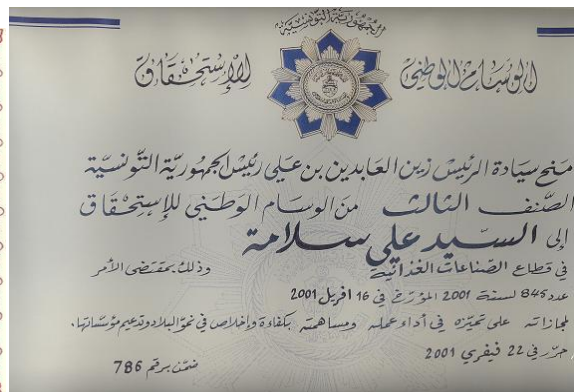 الجمهورية التونسية
الوسام الوطني للإستحقاق
منح سيادة الرئيس زين العابدين بن علي رئيس الجمهورية التونسية
الصنف الثالث من الوسام الوطني للإستحقاق
إلى السيد علي سلامة
في قطاع الصناعات الغذائية وذلك بمقتضى الأمر
عدد 845 لسنة 2001 المؤرخ في 16 افريل 2001
لمجازاته على تميزه في أداء عمله ومساهمته بكفاءة وإخلاص في نمو البلاد وتدعيم مؤسساتها.
حرر في 22 فيفري 2001
ضمن برقم 786